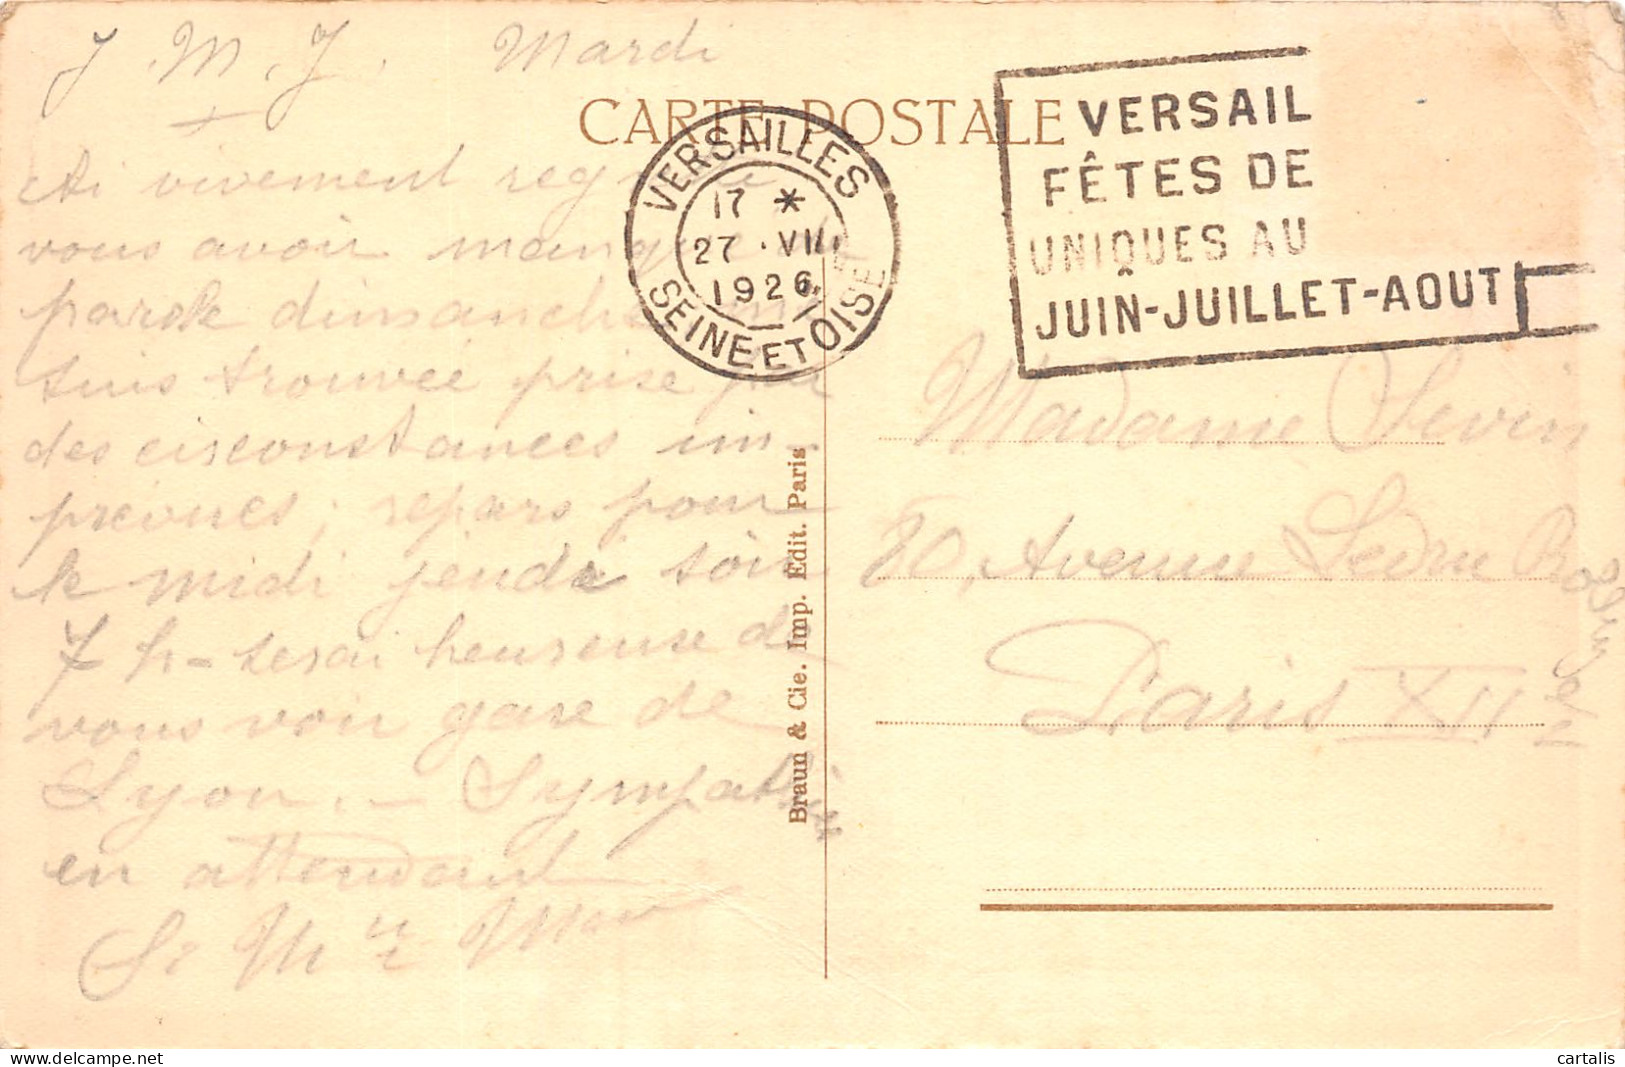 J. M. J. Mardi
CARTE POSTALE
Ai vivement reg
vous avoir manqué
parole dimanche m
suis trouvée prise par
des circonstances im-
prévues ; repars pour
le midi jeudi soir
7 h - serai heureuse de
vous voir gare de
Lyon. - Sympathies
en attendant
Sr M
VERSAILLES
17 *
27 · VII
1926
SEINE ET OISE
VERSAIL
FÊTES DE
UNIQUES AU
JUIN-JUILLET-AOUT
Braun & Cie. Imp. Édit. Paris
Madame Sevin
80, Avenue Ledru Rollin
Paris XIIe
cartalis